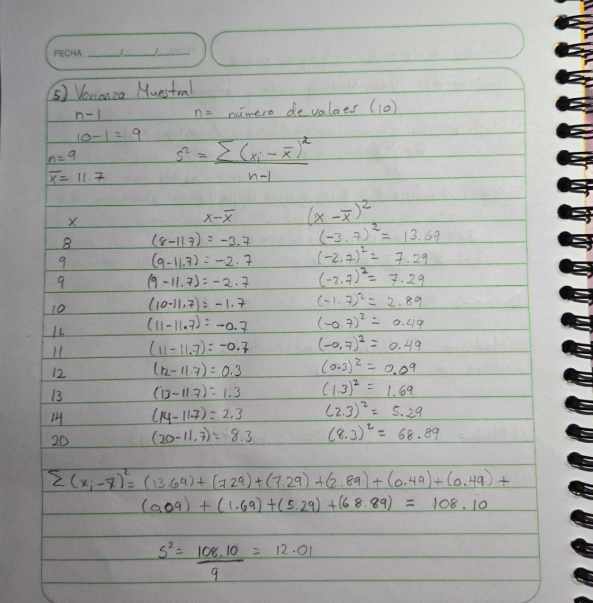 FECHA
5) Varianza Muestral
n-1 n= número de valores (10)
10-1=9
n=9 S² = ∑(xᵢ-x̅)²
x̅=11.7 n-1
x x-x̅ (x-x̅)²
8 (8-11.7)=-3.7 (-3.7)²= 13.69
9 (9-11.7)=-2.7 (-2.7)²= 7.29
9 (9-11.7)=-2.7 (-2.7)²= 7.29
10 (10-11.7)=-1.7 (-1.7)²= 2.89
11 (11-11.7)=-0.7 (-0.7)²= 0.49
11 (11-11.7)=-0.7 (-0.7)²= 0.49
12 (12-11.7)=0.3 (0.3)²= 0.09
13 (13-11.7)=1.3 (1.3)²= 1.69
14 (14-11.7)=2.3 (2.3)²= 5.29
20 (20-11.7)=8.3 (8.3)²= 68.89
∑(xᵢ-x̅)²=(13.69)+(7.29)+(7.29)+(2.89)+(0.49)+(0.49)+
(0.09)+(1.69)+(5.29)+(68.89) = 108.10
S²= 108.10 = 12.01
9